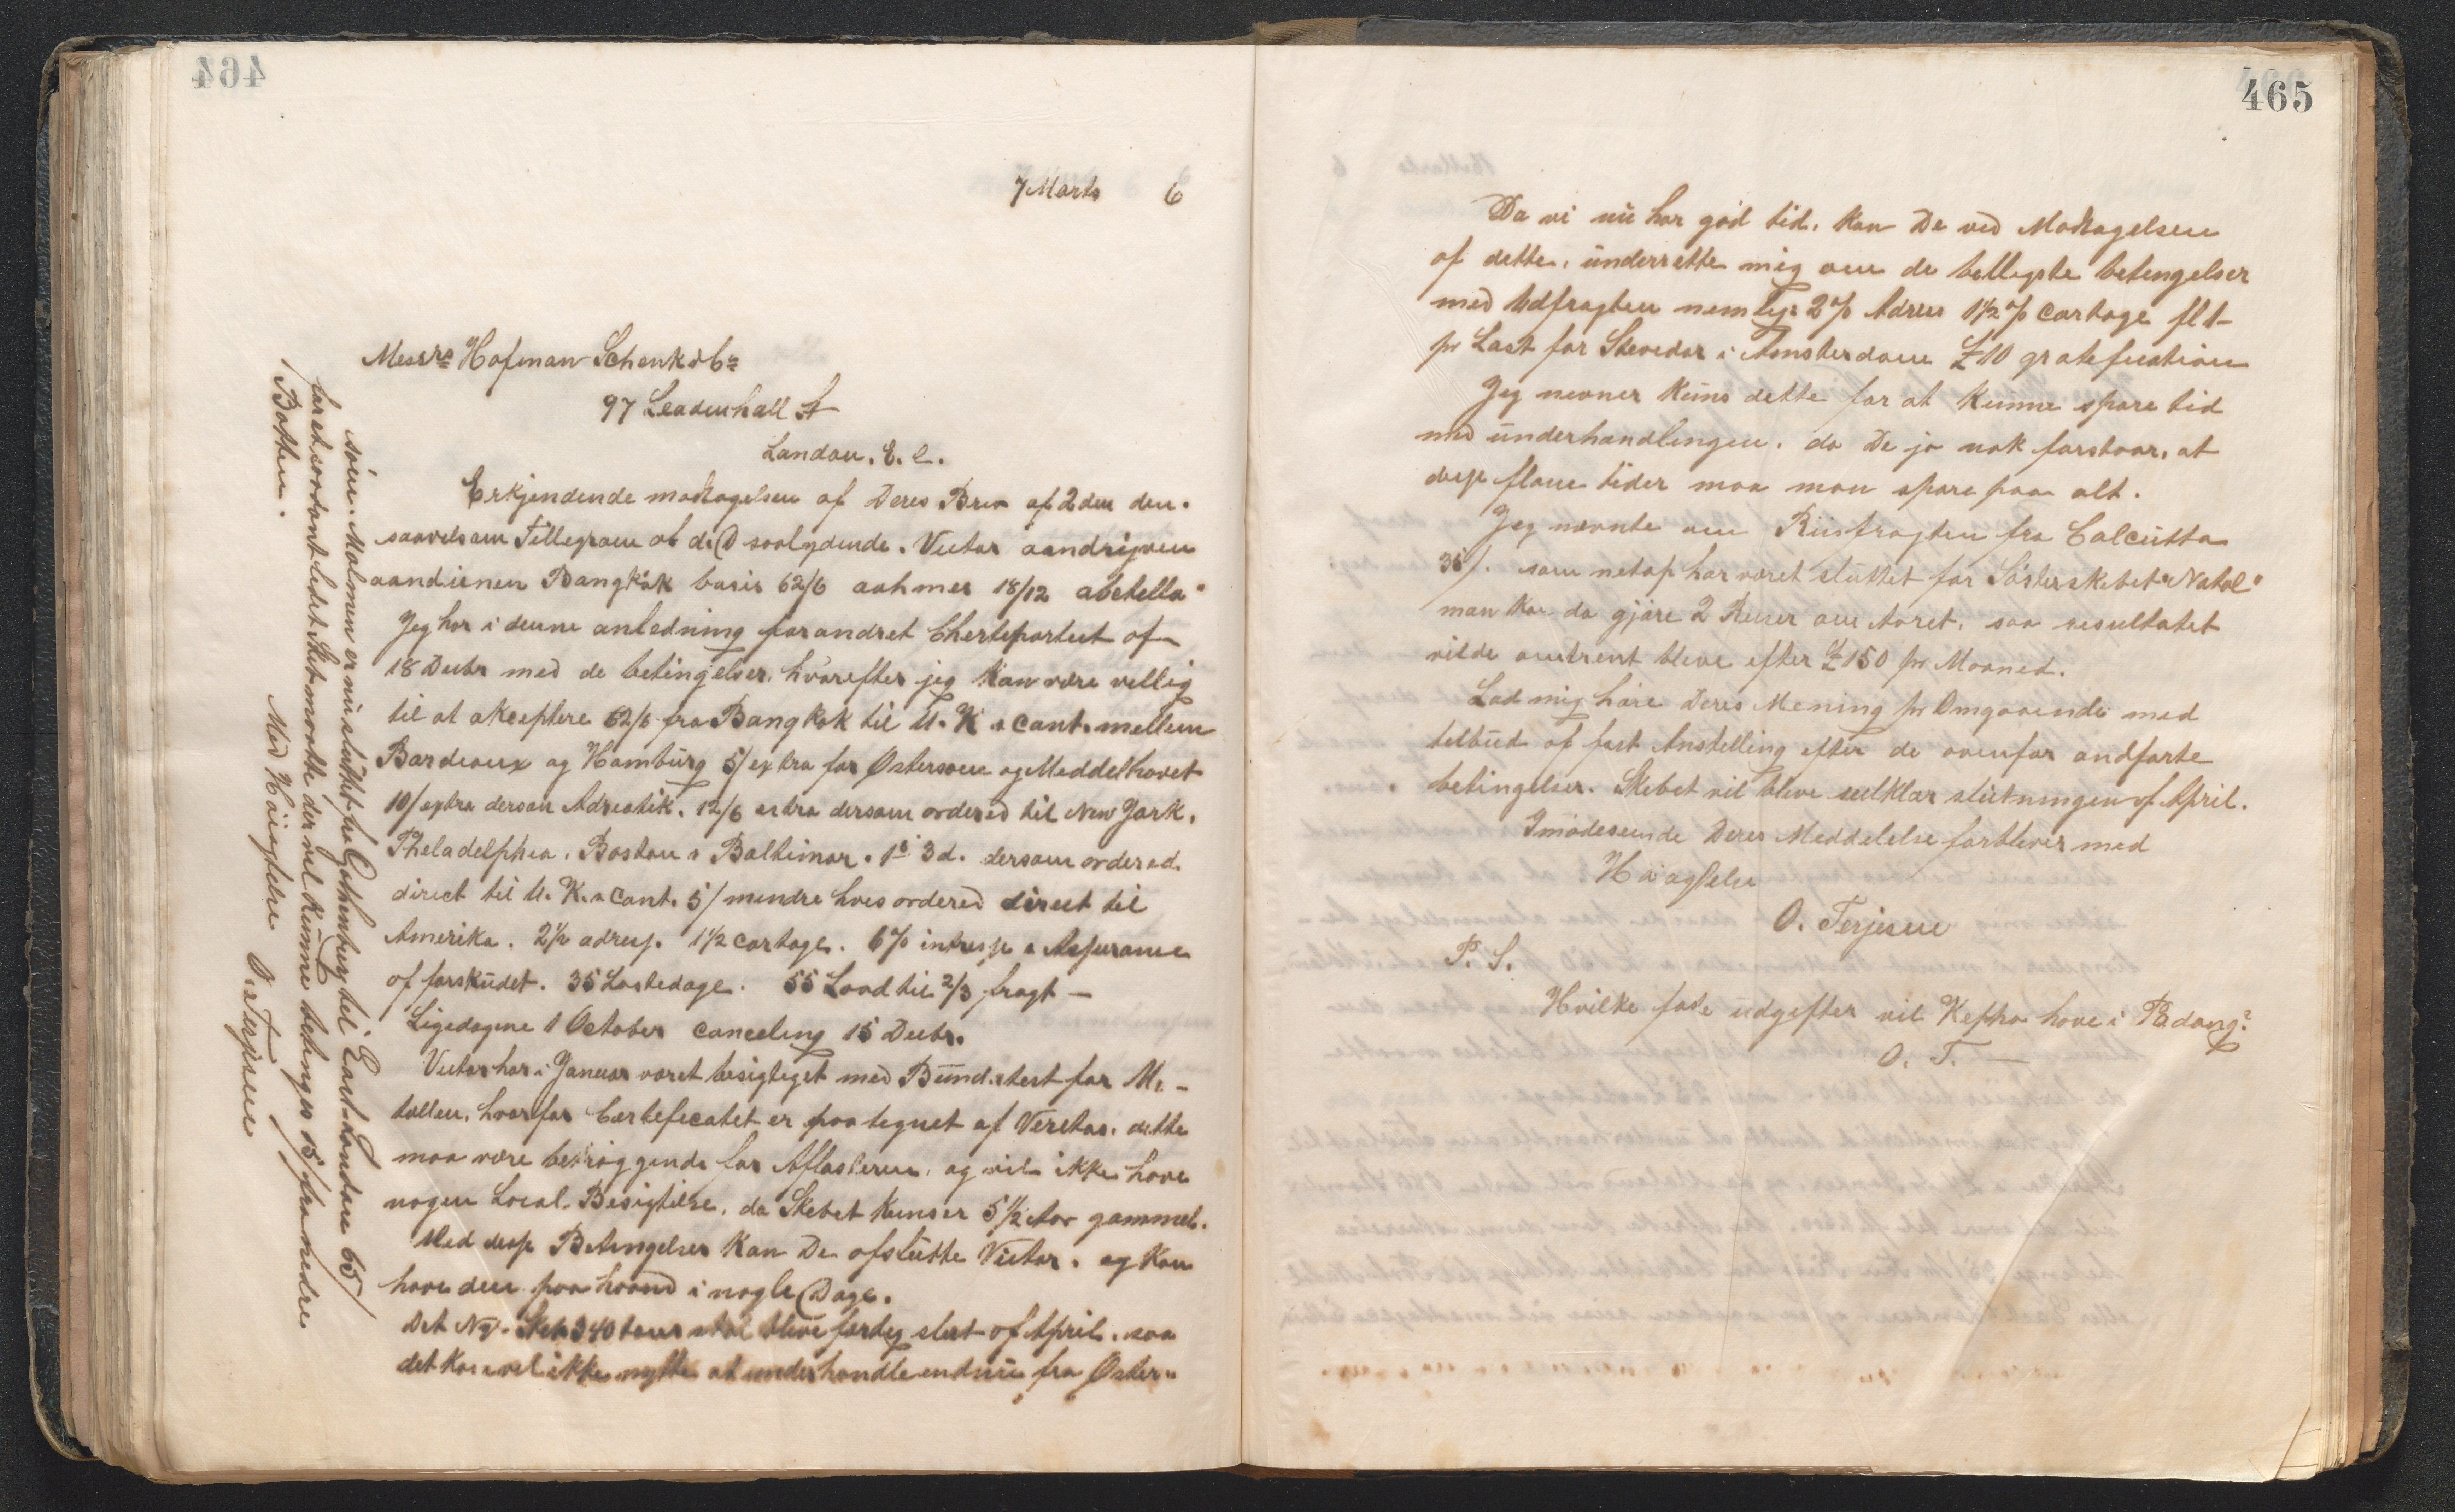 464
7 Marts 6
Messrs Hofman Schenk & Co
97 Leadenhall St
London. E. C.
Erkjendende modtagelsen af Deres Brev af 2den den.
saavelsom Tellegram af d.D saalydende. Victor aandrijven
aandienen Bangkok basis 62/6 aahmes 18/12 abstella"
Jeg har i denne anledning forandret Cherteportiet af
18 Decbr med de betingelser, hvorefter jeg kan være vellig
til at akceptere 62/6 fra Bangkok til U. K a Cont. mellem
Bordeaux og Hamburg 5/ extra for Østersøen og Meddelhavet
10/ extra dersom Adreatik. 12/6 extra dersom ordered til New York.
Pheladelphia. Boston a Baltimor. 1s 3d. dersom ordered.
direct til U. K. a Cont. 5/ mindre hves ordered direct til
Amerika. 2½ adress. 1½ cartage. 6% intresse a Assurance
af forskudet. 35 Lastedage. 55 Laad til 2/3 fragt —
Ligedagene 1 October canceling 15 Decbr.
Victor har i Januar været besigteget med Bund. test for Me-
tallen, hvorfor Certefecatet er paategnet af Veretas. dette
maa være betryggende for Aflasteren, og vil ikke have
nogen Local. Besigtelse, da Skebet kuns er 5½ Aar gammel.
Med desse Betingelser kan De afslutte Victor. og kan
have den paa haand i nogle Dage.
Det Ny. Skeb 340 tons skal bleve færdeg slut af April. saa
det kan vel ikke nytte at underhandle endnu fra Øster"
søen. Malmen er nu sluttet fra Gothenborg tel East London 65/
for et saadant ledet Sket maatte der vel kunne betinges 15/ fra nedre
Botten.
Med Høiagtelse O. Terjesen
465
Da vi nu har god tid. kan De ved Modtagelsen
af dette. underrette mig om de belligste betengelser
med Udfragten nemlig. 2% Adress 1½% Cartage fl 1-
pr Last for Stevedor i Amsterdam £10 gratefication
Jeg nevner kuns dette for at kunne spare tid
med underhandlingen. da De jo nok forstaar, at
desse flaue tider maa man spare paa alt.
Jeg nævnte om Riisfragten fra Calcutta
35/. som netop har været sluttet for Søsterskebet "Natal"
man kan da gjøre 2 Reiser om Aaret, saa resultatet
vilde omtrent bleve efter £150 pr Maaned.
Lad mig høre Deres Mening pr Omgaaende med
telbud af fast Anstelling efter de ovenfor andførte
betingelser. Skebet vil bleve seilklar slutningen af April.
Imødeseende Deres Meddelelse forblever med
Høiagtelse
O. Terjesen
P. S.
Hvilke faste udgefter vil Kepha have i Padang?
O. T. —